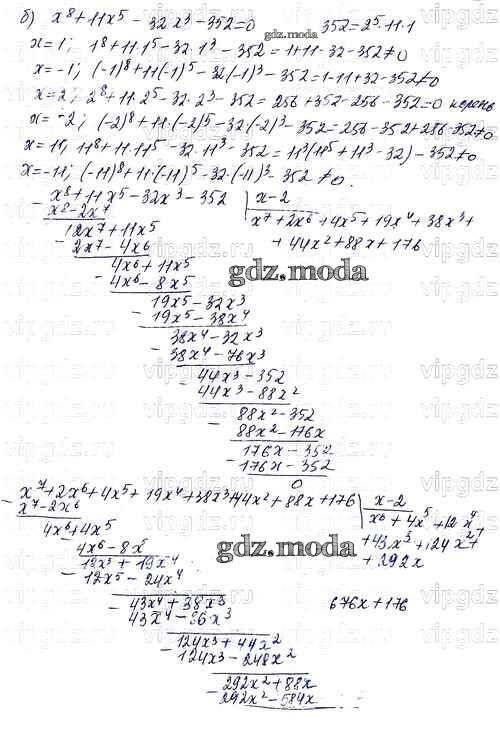 б) x⁸+11x⁵-32x³-352=0 352=2⁵·11·1
x=1; 1⁸+11·1⁵-32·1³-352=1+11-32-352≠0
x=-1; (-1)⁸+11(-1)⁵-32(-1)³-352=1-11+32-352≠0
x=2; 2⁸+11·2⁵-32·2³-352=256+352-256-352=0 корень
x=-2; (-2)⁸+11·(-2)⁵-32(-2)³-352=256-352+256-352≠0
x=11; 11⁸+11·11⁵-32·11³-352=11³(11⁵+11³-32)-352≠0
x=-11; (-11)⁸+11·(-11)⁵-32·(-11)³-352≠0.
x⁸+11x⁵-32x³-352 | x-2
x⁸-2x⁷ x⁷+2x⁶+4x⁵+19x⁴+38x³+
2x⁷+11x⁵ +44x²+88x+176
2x⁷-4x⁶
4x⁶+11x⁵
4x⁶-8x⁵
gdz.moda
19x⁵-32x³
19x⁵-38x⁴
38x⁴-32x³
38x⁴-76x³
44x³-352
44x³-88x²
88x²-352
88x²-176x
176x-352
176x-352
0
x⁷+2x⁶+4x⁵+19x⁴+38x³+44x²+88x+176 | x-2
x⁷-2x⁶ x⁶+4x⁵+12x⁴
4x⁶+4x⁵ +43x³+124x²+
4x⁶-8x⁵ +292x
gdz.moda
12x⁵+19x⁴
12x⁵-24x⁴
43x⁴+38x³ 676x+176
43x⁴-86x³
124x³+44x²
124x³-248x²
292x²+88x
292x²-584x